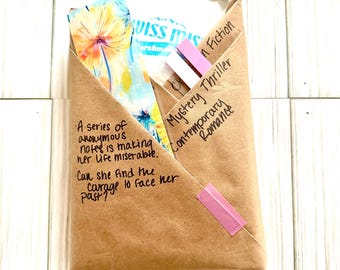 WISS MIS
Fiction
Mystery Thriller
Contemporary
Romance
A series of
anonymous
notes is making
her life miserable.
Can she find the
courage to face her
past?